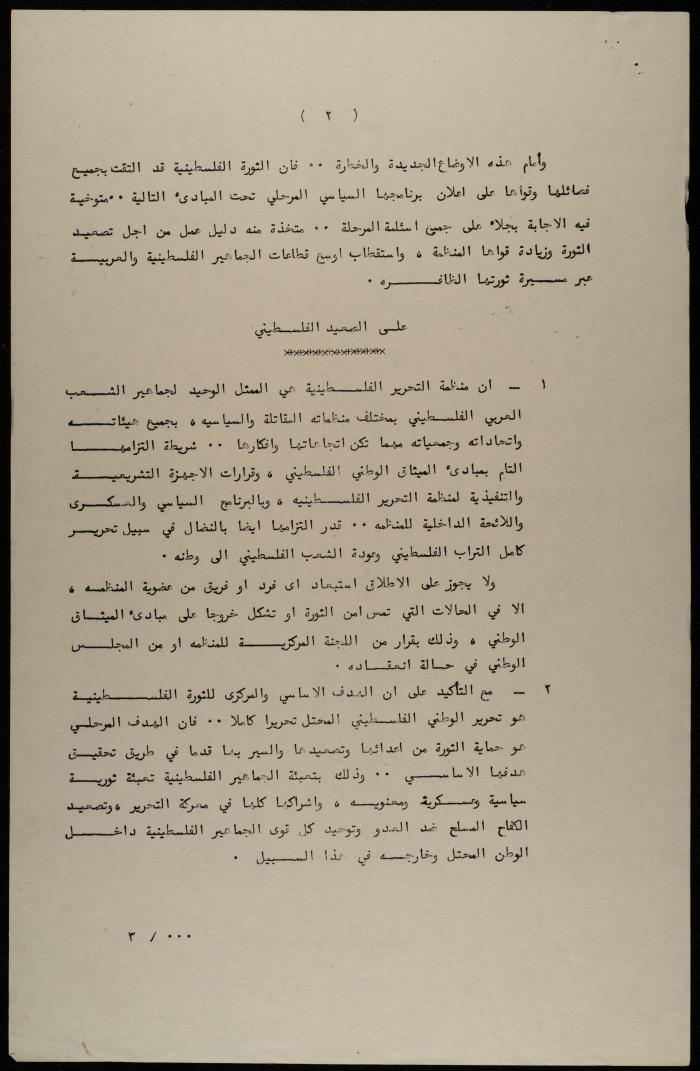 ( ٢ )
وأمام هذه الاوضاع الجديدة والخطرة ٠٠ فان الثورة الفلسطينية قد التقت بجميع
فصائلها وقواها على اعلان برنامجها السياسي المرحلي تحت المبادئ التالية ٠٠ متوخية
فيه الاجابة بجلاء على جميع اسئلة المرحلة ٠٠ متخذة منه دليل عمل من اجل تصعيد
الثورة وزيادة قواها المنظمة ، واستقطاب اوسع قطاعات الجماهير الفلسطينية والعربيــــة
عبر مســيرة ثورتها الظافــــــره ٠
علــى الصعيد الفلســطيني
××××××××××××××××
١ ــ ان منظمة التحرير الفلســطينية هي الممثل الوحيد لجماهير الشــعب
العربي الفلســطيني بمختلف منظماته المقاتلة والسياسيه ، بجميع هيئاتــــه
واتحاداته وجمعياته مهما تكن اتجاهاتها وافكارها ٠٠ شريطة التزامهـــا
التام بمبادئ الميثاق الوطني الفلسطيني ، وقرارات الاجهزة التشريعيــــة
والتنفيذية لمنظمة التحرير الفلســطينيه ، وبالبرنامج السياسي والعســكرى
واللائحة الداخلية للمنظمه ٠٠ قدر التزامها ايضا بالنضال في سبيل تحريــر
كامل التراب الفلسطيني وعودة الشعب الفلسطيني الى وطنه ٠
ولا يجوز على الاطلاق استبعاد اى فرد او فريق من عضوية المنظمــه ،
الا في الحالات التي تمس امن الثورة او تشكل خروجا على مبادئ الميثــاق
الوطني ، وذلك بقرار من اللجنة المركزيــــة للمنظمه او من المجلــس
الوطني في حــالة انعقــاده ٠
٢ ــ مع التأكيد على ان الهدف الاساسي والمركزى للثورة الفلســـطينية
هو تحرير الوطني الفلسطيني المحتل تحريرا كاملا ٠٠ فان الهدف المرحلــي
هو حماية الثورة من اعدائها وتصعيدها والسير بها قدما في طريق تحقيــق
هدفها الاساســــي ٠٠ وذلك بتعبئة الجماهير الفلسطينية تعبئة ثوريــــة
سياسية وعســكرية ومعنويــه ، واشراكها كلها في معركة التحرير ، وتصعيد
الكفاح المسلح ضد العدو وتوحيد كل قوى الجماهير الفلسطينية داخــــل
الوطن المحتل وخارجــه في هذا الســبيل ٠
٠٠٠ / ٣